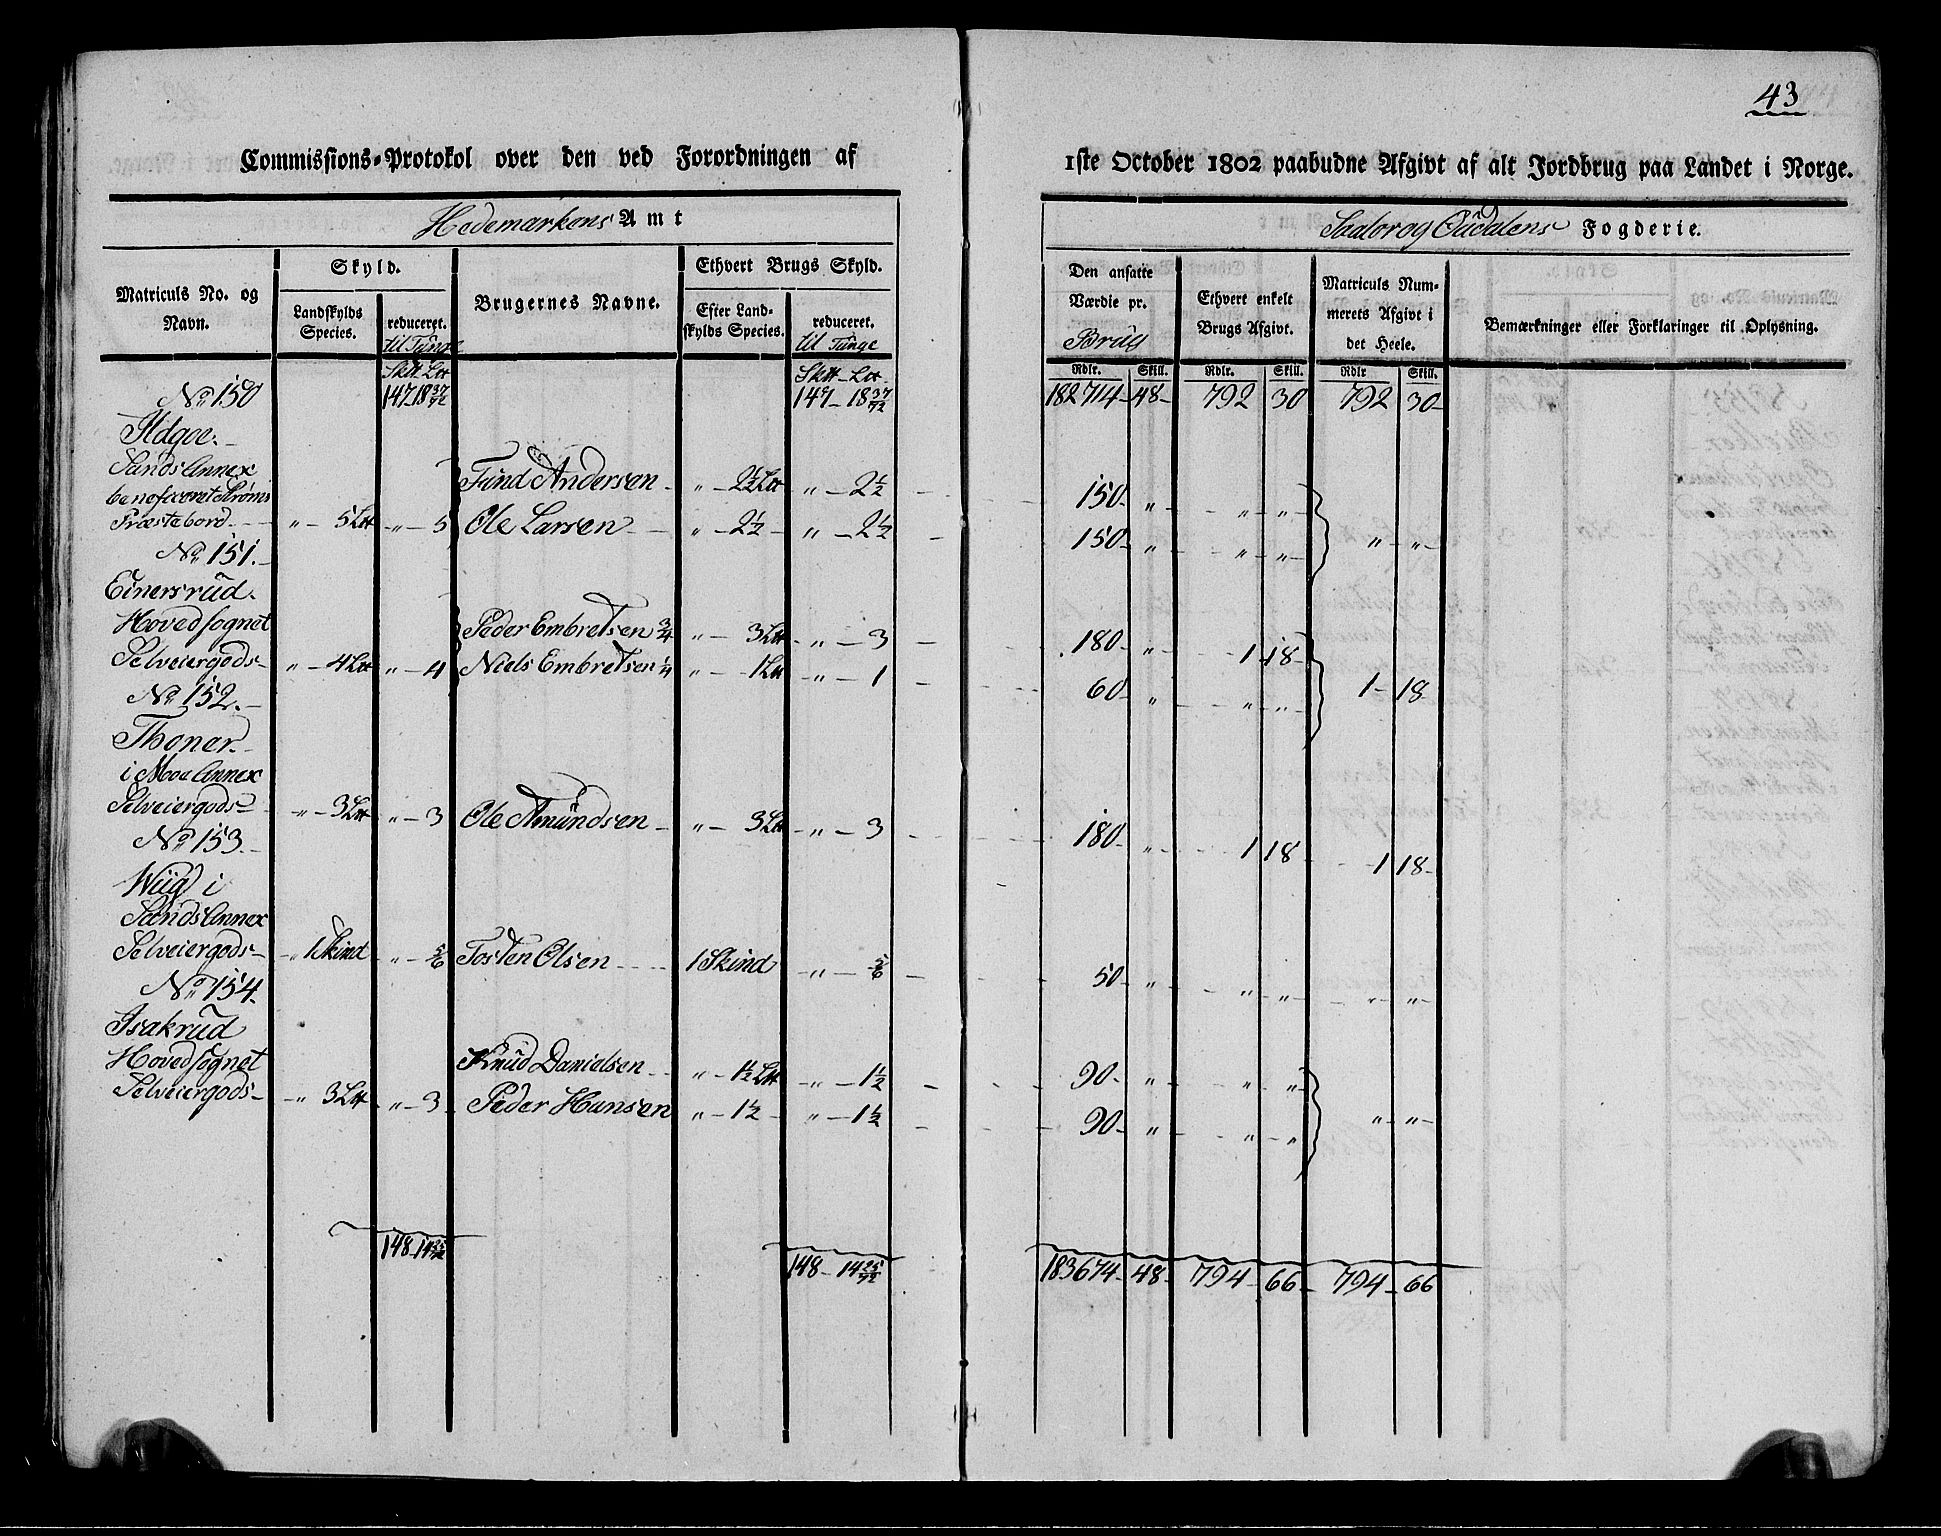 43
Commissions-Protokol over den ved Forordningen af 1ste October 1802 paabudne Afgivt af alt Jordbrug paa Landet i Norge.
Hedemarkens Amt
Soloer og Oudalens Fogderie.
Matriculs No. og Navn.
Skyld.
Landskylds Species.
reduceret. til Tunge
Brugernes Navne.
Ethvert Brugs Skyld.
Efter Landskylds Species.
reduceret. til Tunge
Den ansatte Værdie pr. Brug
Ethvert enkelt Brugs Afgivt.
Matriculs Nummerets Afgivt i det Heele.
Bemærkninger eller Forklaringer til Oplysning.
Rdlr. Skill. Rdlr. Skill. Rdlr Skill.
147 18 37/72 147 - 18 37/72 182714 - 48 - 792 30 792 30 -
No 150
Sands Annex
Præstebord - " - 5 " - 5 Andersen " - 2½ " - 2½ 150 - " " "
Ole Larsen " - 2½ " - 2½ 150 " " " " "
No 151.
Einersrud.
Hovedsognet Peder Embretsen 3/4 " - 3 " - 3 180 " 1 18
Selveiergods " - 4 " - 4 Niels Embretsen 1/4 " - 1 " - 1 60 - " " " 1 - 18
No 152.
Thoner.
i Moe Annex
Selveiergods " - 3 " - 3 Ole Amundsen " - 3 " - 3 180 - " 1 18 1 18 -
No 153.
Wiig i
Sands Annex
Selveiergods - " 1 Skind " - 5/6 Tosten Olsen 1 Skind " - 5/6 50 - " " " " "
No 154.
Isakrud
Hovedsognet Knud Danielsen " - 1½ " - 1½ 90 - " " "
Selveiergods - " 3 " - 3 Peder Hansen " - 1½ " - 1½ 90 - " " " " "
148 - 14 25/72 148 - 14 25/72 183674 - 48 - 794 66 - 794 - 66